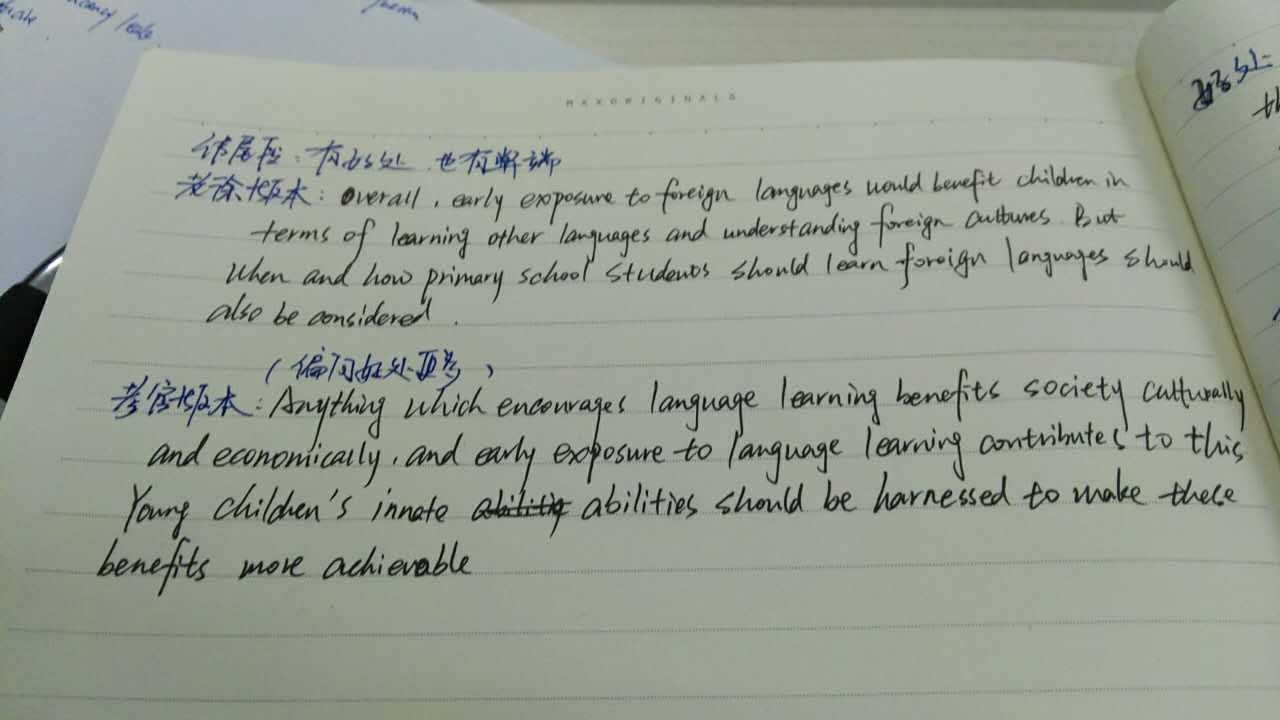 iate
leade
MAXORIGINALS
结尾段：有好处 也有弊端
老徐版本：overall, early exposure to foreign languages would benefit children in
terms of learning other languages and understanding foreign cultures. But
when and how primary school students should learn foreign languages should
also be considered.
（偏向好处更多）
考官版本：Anything which encourages language learning benefits society culturally
and economically, and early exposure to language learning contributes to this
Young children's innate abilities should be harnessed to make these
benefits more achievable
好处：
th